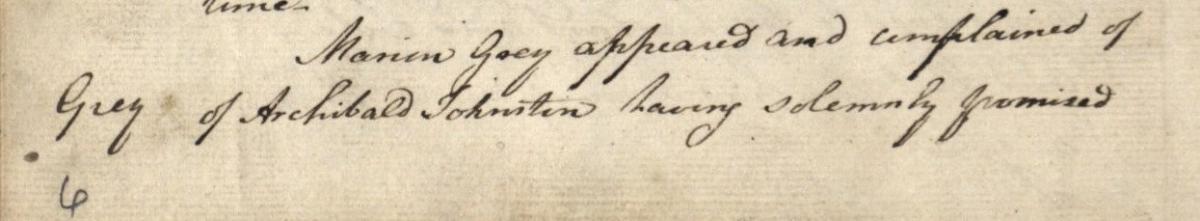 time-
Marion Grey appeared and complained of
Grey of Archibald Johnston having solemnly promised
6